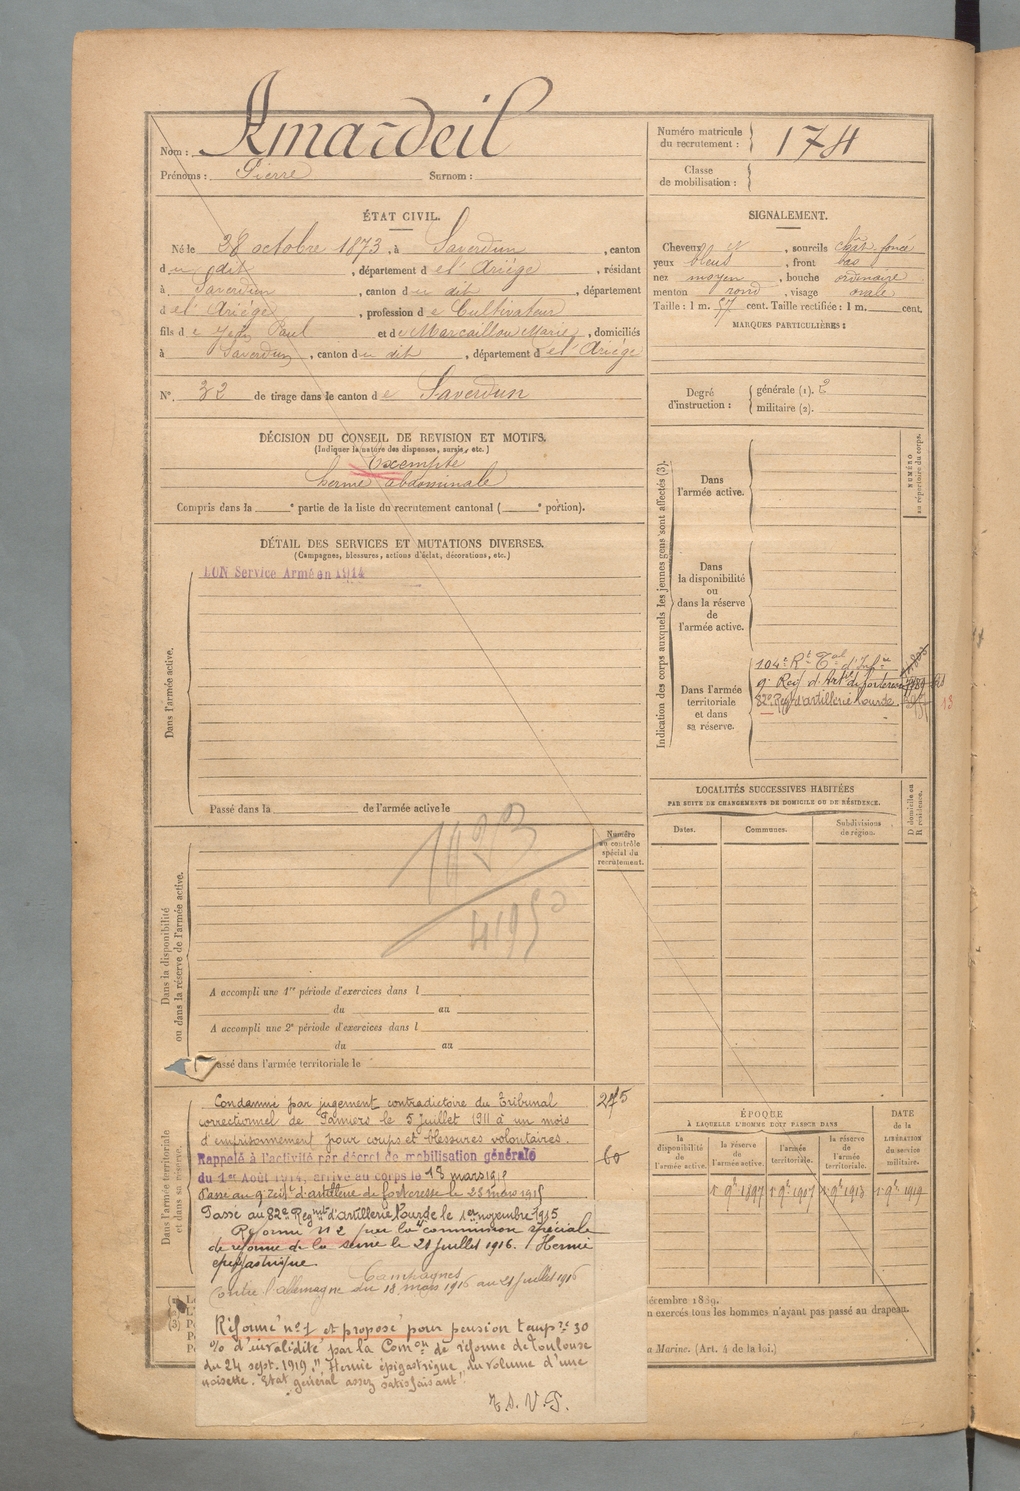 Nom : Amardeil
Prénoms : Pierre Surnom :
Numéro matricule du recrutement : 174
Classe de mobilisation :
ÉTAT CIVIL.
Né le 28 octobre 1873, à Saverdun, canton
du dit, département de l'Ariège, résidant
à Saverdun, canton du dit, département
de l'Ariège, profession de Cultivateur
fils de Jean Paul et de Marcaillou Marie, domiciliés
à Saverdun, canton du dit, département de l'Ariège
N° 32 de tirage dans le canton de Saverdun
SIGNALEMENT.
Cheveux et, sourcils chât. foncé
yeux bleus, front bas
nez moyen, bouche ordinaire
menton rond, visage ovale
Taille : 1 m. 57 cent. Taille rectifiée : 1 m. cent.
MARQUES PARTICULIÈRES :
Degré d'instruction : générale (1). 2
militaire (2).
DÉCISION DU CONSEIL DE REVISION ET MOTIFS.
(Indiquer la nature des dispenses, sursis, etc.)
Exempté
hernie abdominale
Compris dans la e partie de la liste du recrutement cantonal ( e portion).
DÉTAIL DES SERVICES ET MUTATIONS DIVERSES.
(Campagnes, blessures, actions d'éclat, décorations, etc.)
BON Service Armé en 1914
Dans l'armée active.
Passé dans la de l'armée active le
Indication des corps auxquels les jeunes gens sont affectés (3).
NUMÉRO au répertoire du corps.
Dans l'armée active.
Dans la disponibilité ou dans la réserve de l'armée active.
Dans l'armée territoriale et dans sa réserve.
104e Rt Tal d'Infie
9e Reg. d'Artie de forteresse
82e Regt d'artillerie lourde
13
LOCALITÉS SUCCESSIVES HABITÉES
PAR SUITE DE CHANGEMENTS DE DOMICILE OU DE RÉSIDENCE.
Dates. Communes. Subdivisions de région. D domicile ou R résidence.
Numéro au contrôle spécial du recrutement.
Dans la disponibilité ou dans la réserve de l'armée active.
1423
4195
A accompli une 1re période d'exercices dans l
du au
A accompli une 2e période d'exercices dans l
du au
assé dans l'armée territoriale le
Dans l'armée territoriale et dans sa réserve.
Condamné par jugement contradictoire du Tribunal 275
correctionnel de Pamiers le 5 Juillet 1911 à un mois
d'emprisonnement pour coups et blessures volontaires.
Rappelé à l'activité par décret de mobilisation générale 60
du 1er Août 1914, arrivé au corps le 18 mars 1915
Passé au 9e Regt d'artillerie de forteresse le 25 mars 1915
Passé au 82e Regmt d'artillerie lourde le 1er novembre 1915
Réformé n° 2 par la commission spéciale
de réforme de la Seine le 21 juillet 1916. Hernie
épigastrique.
Campagnes
Contre l'Allemagne du 18 mars 1915 au 21 juillet 1916
Réformé n° 1 et proposé pour pension tempre 30
% d'invalidité par la Comon de réforme de Toulouse
du 24 sept. 1919. "Hernie épigastrique du volume d'une
noisette. Etat général assez satisfaisant".
ÉPOQUE
À LAQUELLE L'HOMME DOIT PASSER DANS
la disponibilité de l'armée active. la réserve de l'armée active. l'armée territoriale. la réserve de l'armée territoriale.
DATE de la LIBÉRATION du service militaire.
1er 9bre 1897 1er 9bre 1907 1er 9bre 1913 1er 9bre 1919
décembre 1889.
n exercés tous les hommes n'ayant pas passé au drapeau.
a Marine. (Art. 4 de la loi.)